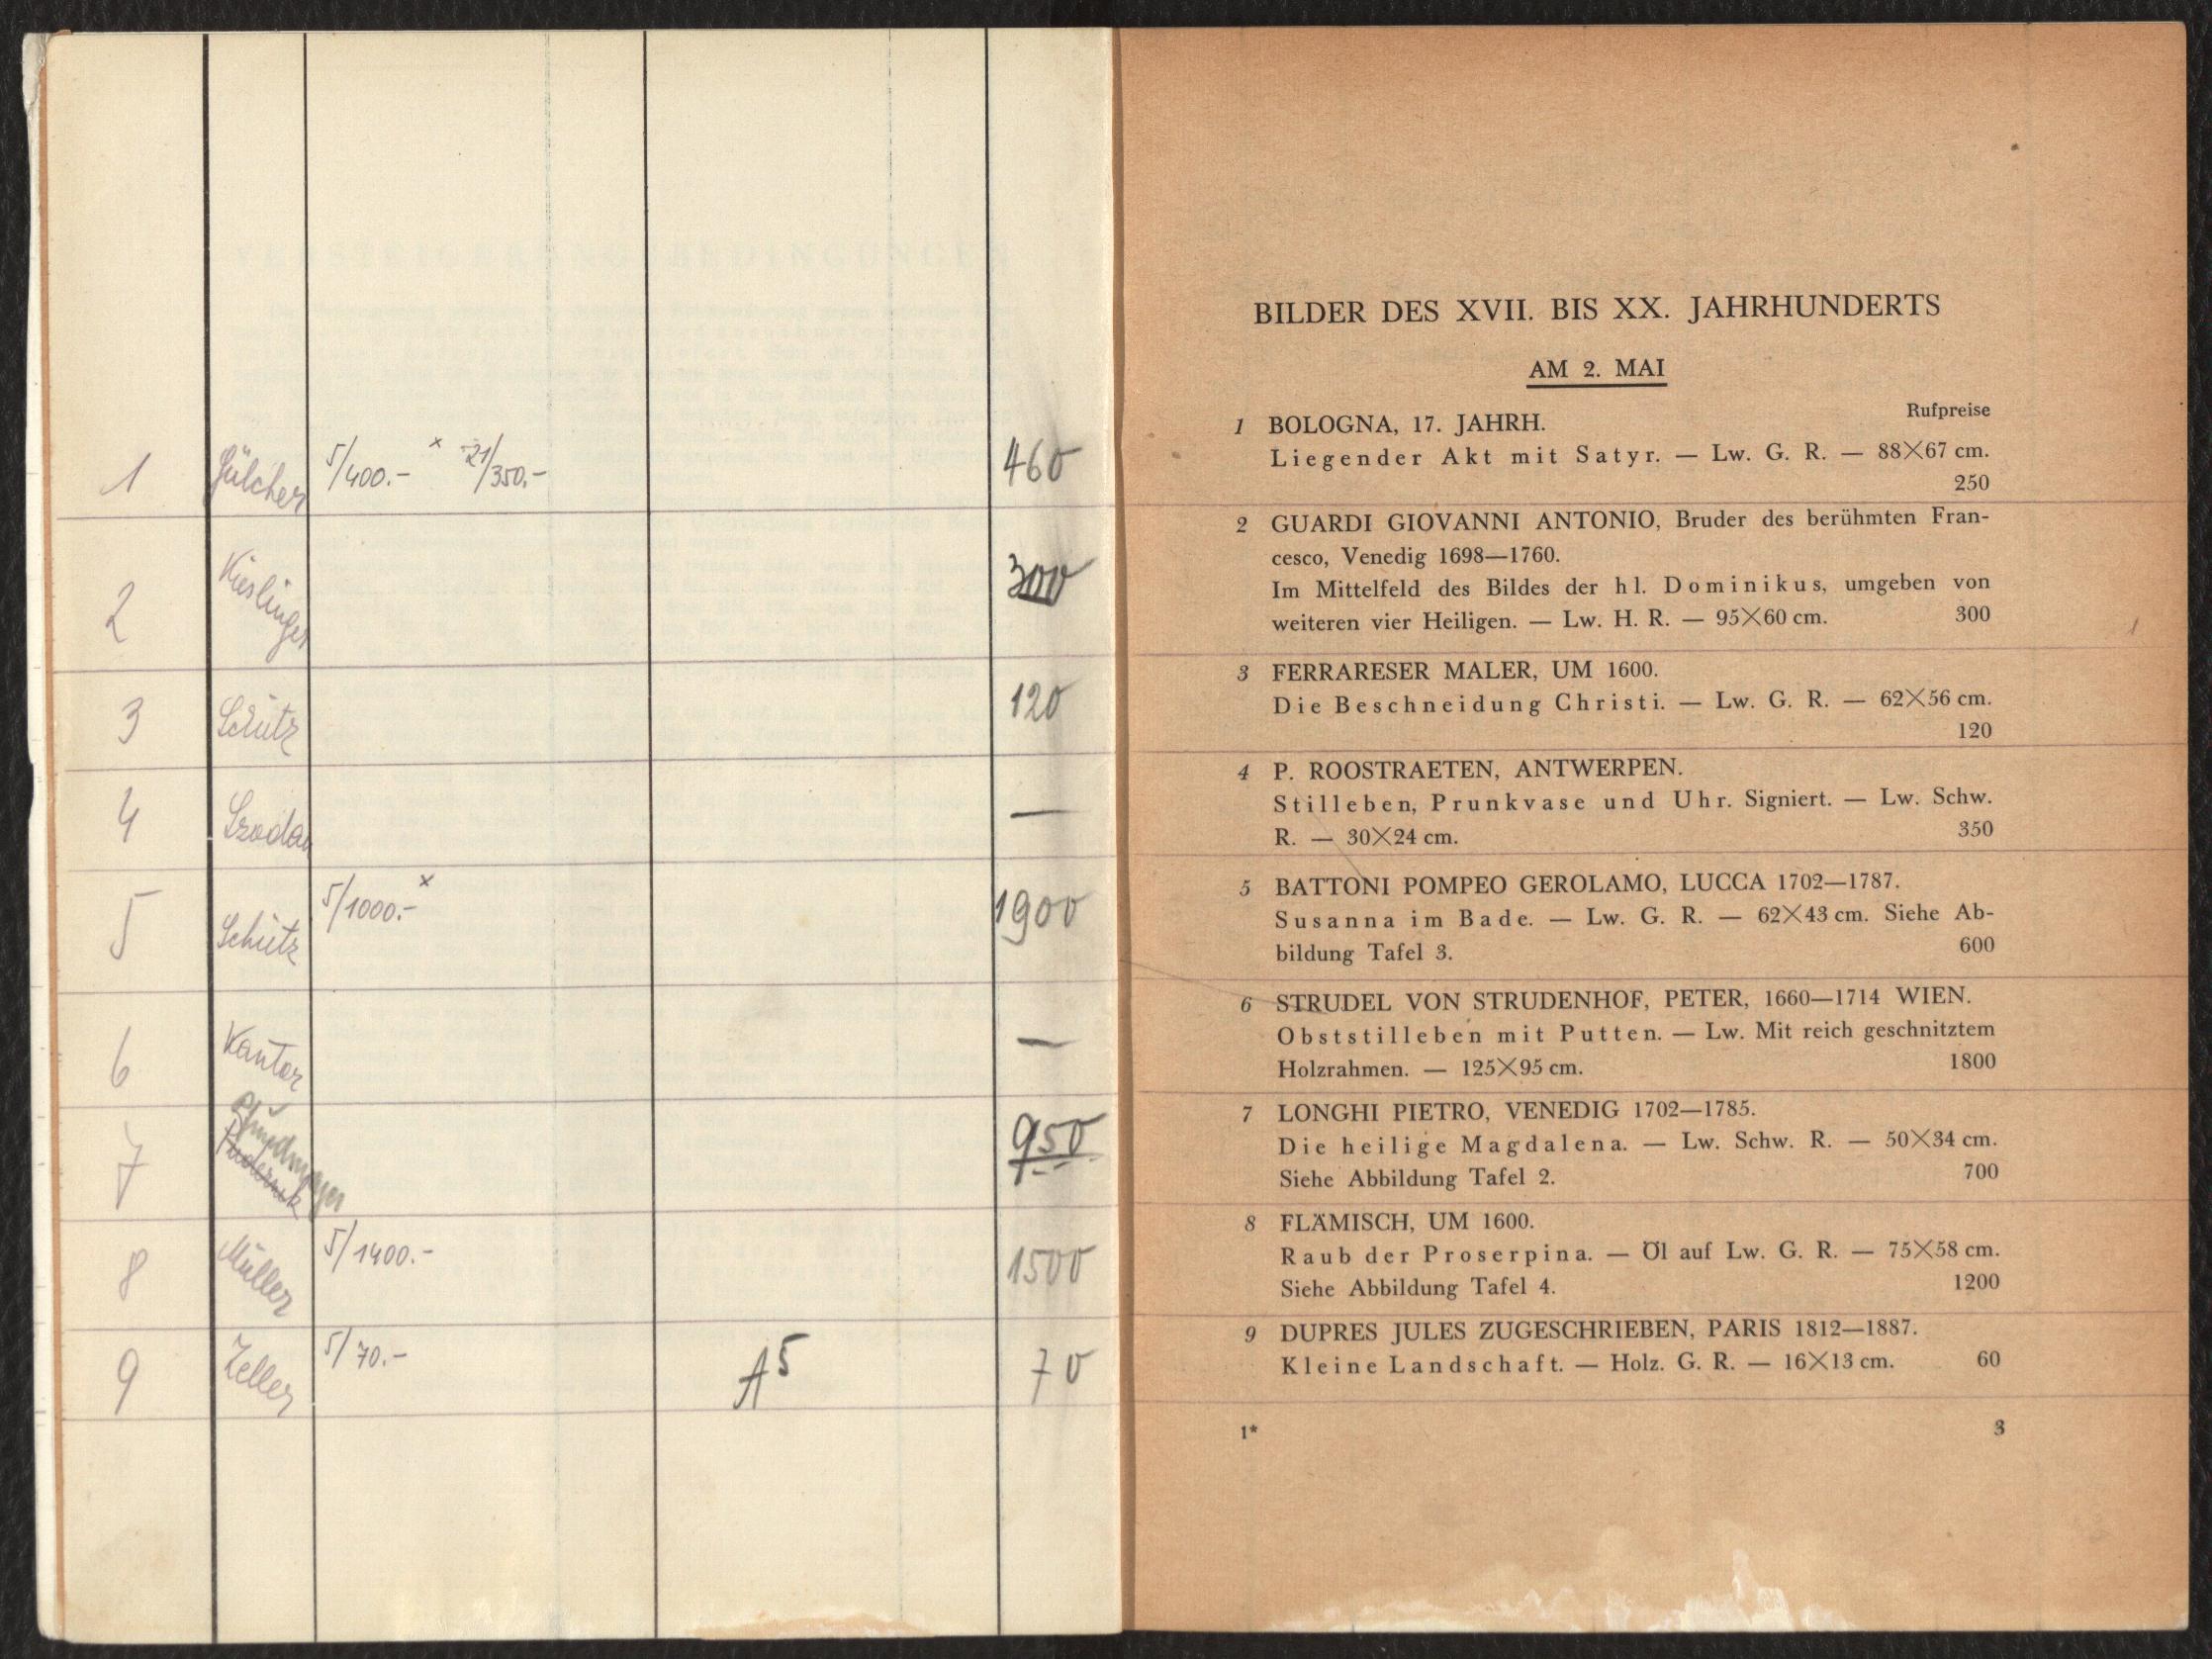 1 Jülcher 5/400.- x 21/350.- 460
2 Kieslinger 300
3 Schütz 120
4 —
5 Schütz 5/1000.- x 1900
6 Kantor —
7 950
8 Müller 5/1400.- 1500
9 Zeller 5/70.- A5 70
BILDER DES XVII. BIS XX. JAHRHUNDERTS
AM 2. MAI
Rufpreise
1 BOLOGNA, 17. JAHRH.
Liegender Akt mit Satyr. — Lw. G. R. — 88×67 cm.
250
2 GUARDI GIOVANNI ANTONIO, Bruder des berühmten Fran-
cesco, Venedig 1698—1760.
Im Mittelfeld des Bildes der hl. Dominikus, umgeben von
weiteren vier Heiligen. — Lw. H. R. — 95×60 cm. 300
3 FERRARESER MALER, UM 1600.
Die Beschneidung Christi. — Lw. G. R. — 62×56 cm.
120
4 P. ROOSTRAETEN, ANTWERPEN.
Stilleben, Prunkvase und Uhr. Signiert. — Lw. Schw.
R. — 30×24 cm. 350
5 BATTONI POMPEO GEROLAMO, LUCCA 1702—1787.
Susanna im Bade. — Lw. G. R. — 62×43 cm. Siehe Ab-
bildung Tafel 3. 600
6 STRUDEL VON STRUDENHOF, PETER, 1660—1714 WIEN.
Obststilleben mit Putten. — Lw. Mit reich geschnitztem
Holzrahmen. — 125×95 cm. 1800
7 LONGHI PIETRO, VENEDIG 1702—1785.
Die heilige Magdalena. — Lw. Schw. R. — 50×34 cm.
Siehe Abbildung Tafel 2. 700
8 FLÄMISCH, UM 1600.
Raub der Proserpina. — Öl auf Lw. G. R. — 75×58 cm.
Siehe Abbildung Tafel 4. 1200
9 DUPRES JULES ZUGESCHRIEBEN, PARIS 1812—1887.
Kleine Landschaft. — Holz. G. R. — 16×13 cm. 60
1* 3